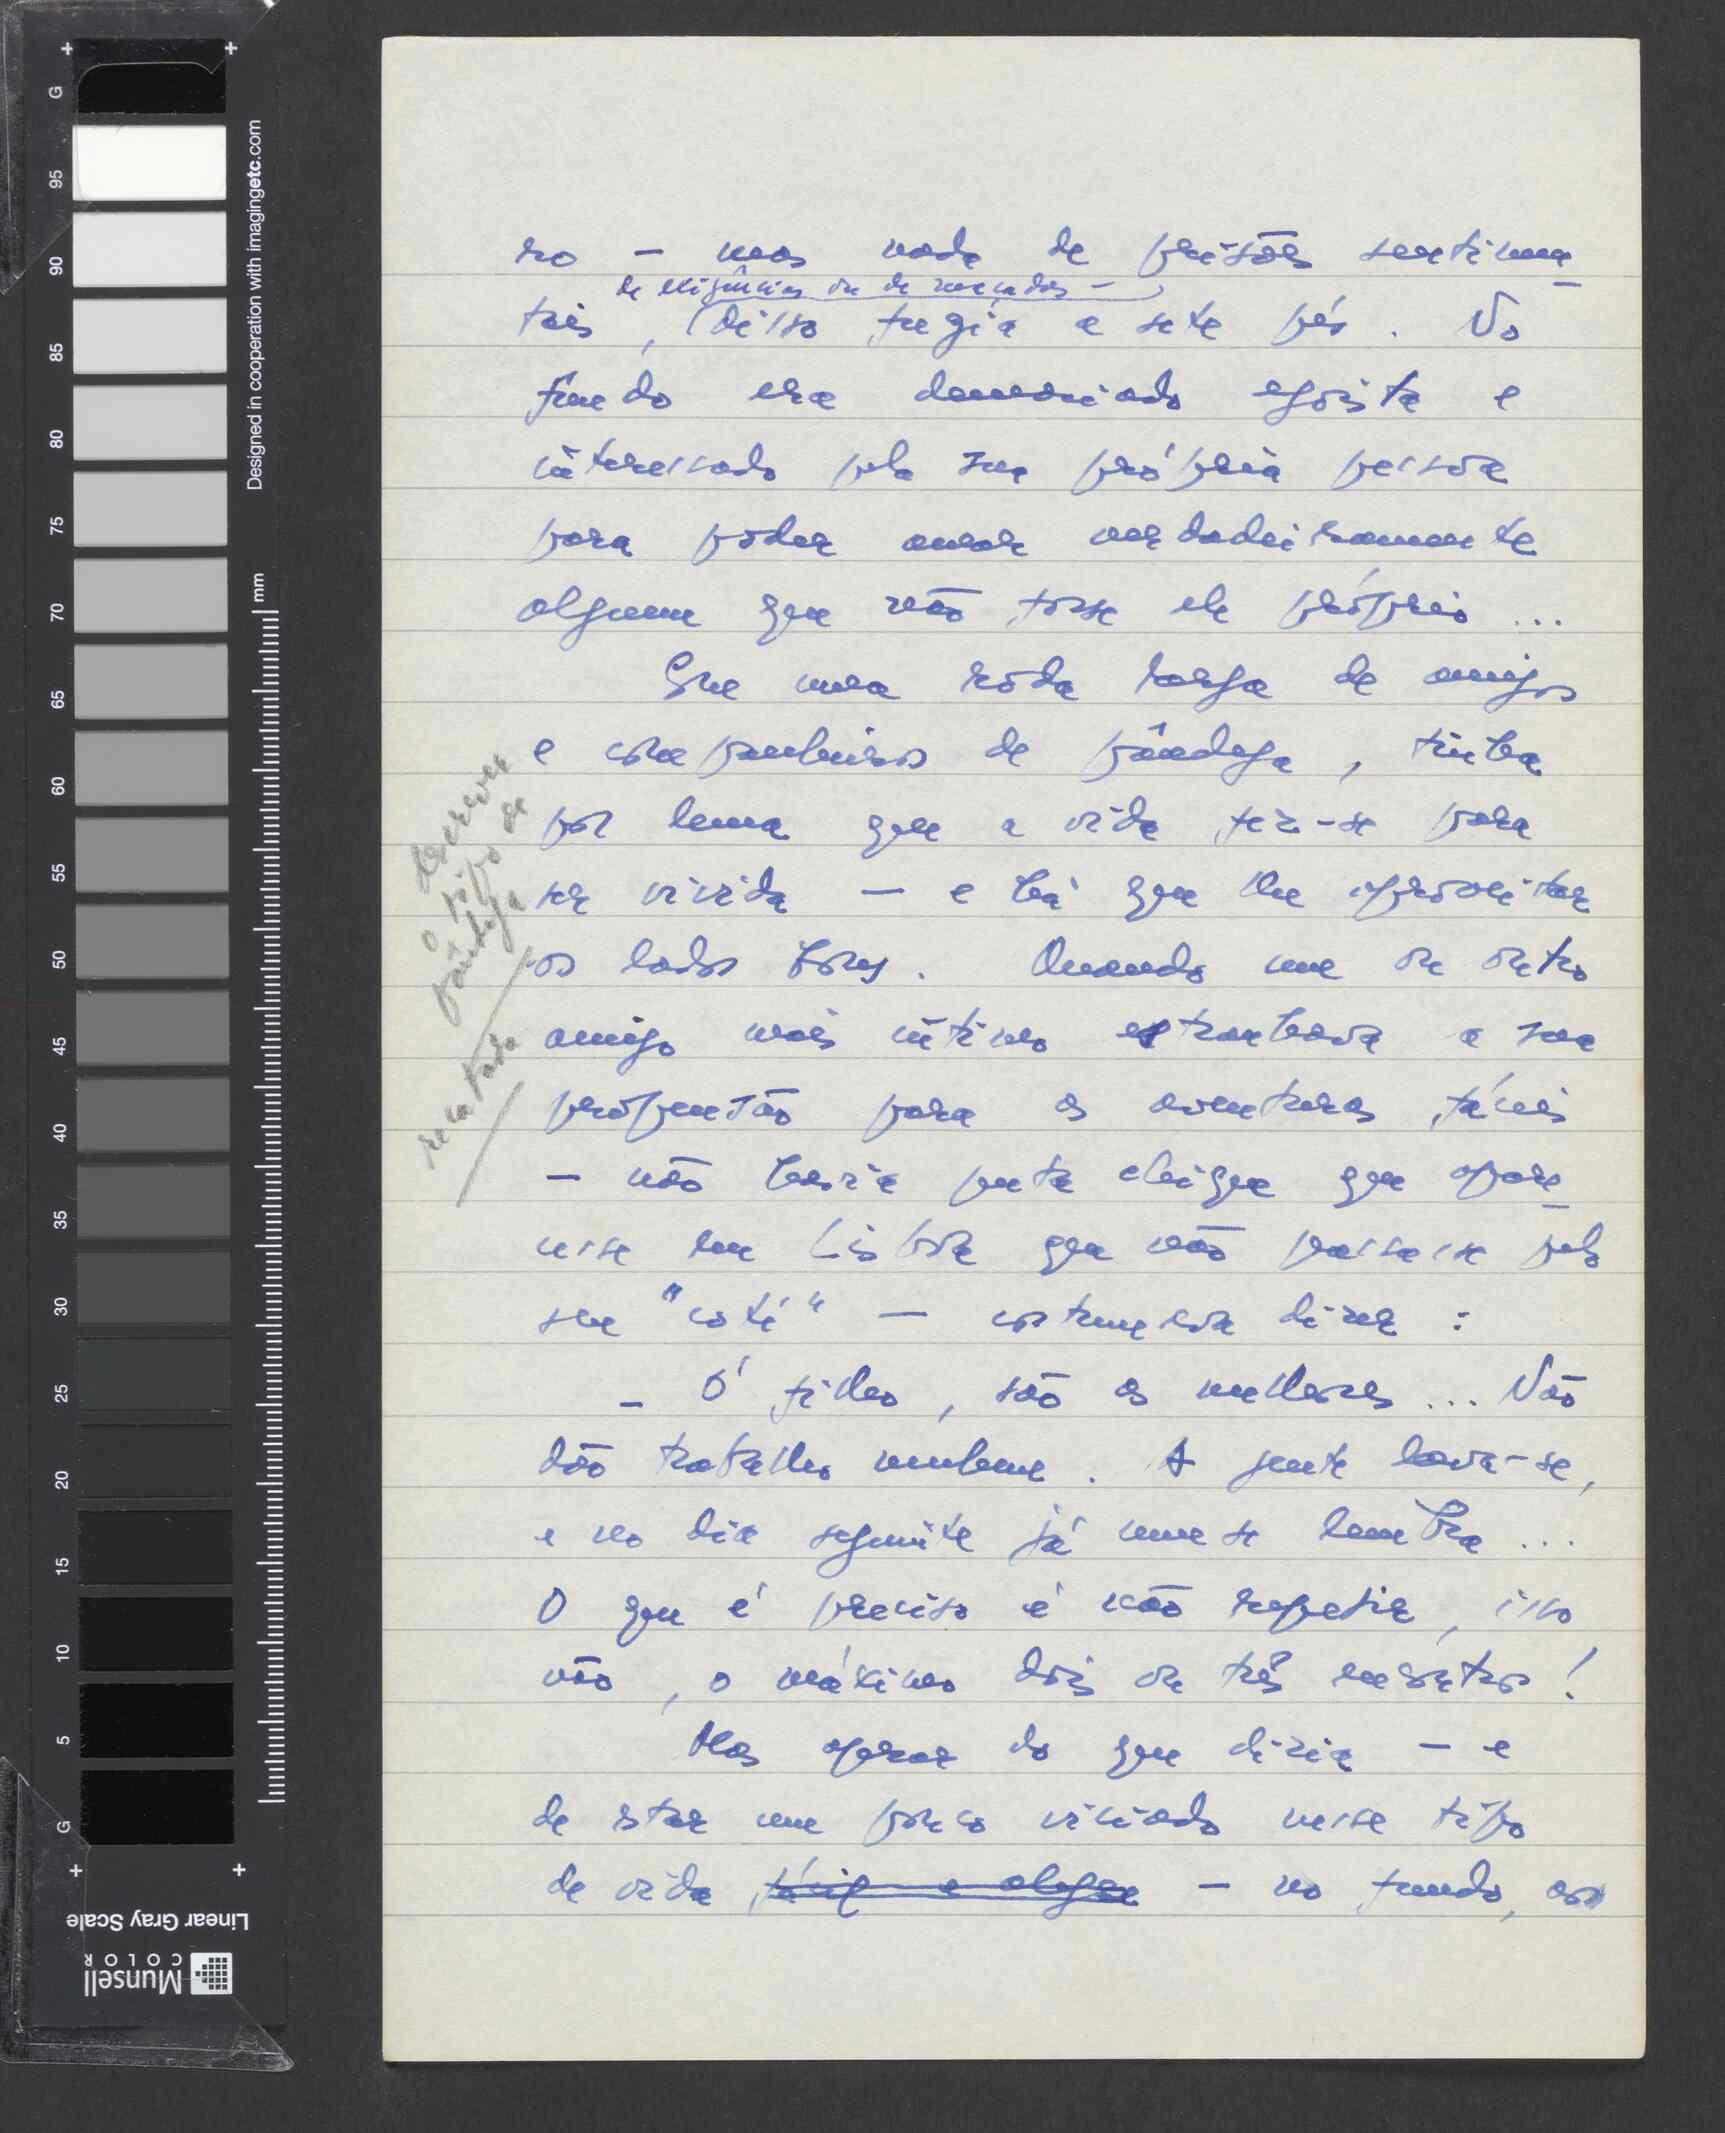 ro - mas nada de prisões sentimen-
de exigências ou de recados -
tais, disso fugia a sete pés. No
fundo era demasiado egoista e
interessado pela sua própria pessoa
para poder amar verdadeiramente
alguem que não fosse ele próprio ...
Em uma róda larga de amigos
e companheiros de pândega, tinha
por lema que a vida fez-se para
ser vivida - e há que lhe aproveitar
os lados bons. Quando um ou outro
amigo mais intimo estranhava a sua
propensão para as aventuras fáceis
- não havia puta chique que apare-
cesse em Lisboa que não passasse pelo
seu "coté" - costumava dizer :
- Ó filho, são as melhores ... Não
dão trabalho nenhum. A gente lava-se,
e no dia seguinte já nem se lembra ...
O que é preciso é não repetir, isso
não, o máximo dois ou três encontros !
Mas apesar do que dizia - e
de estar um pouco viciado nesse tipo
de vida fácil e alegre - no fundo, as
descrever
o tipo de
pândega
recatado
G
95
90
85
80
75
70
65
60
55
50
45
40
35
30
25
20
15
10
5
G
Designed in cooperation with imagingetc.com
mm
Linear Gray Scale
Munsell
COLOR